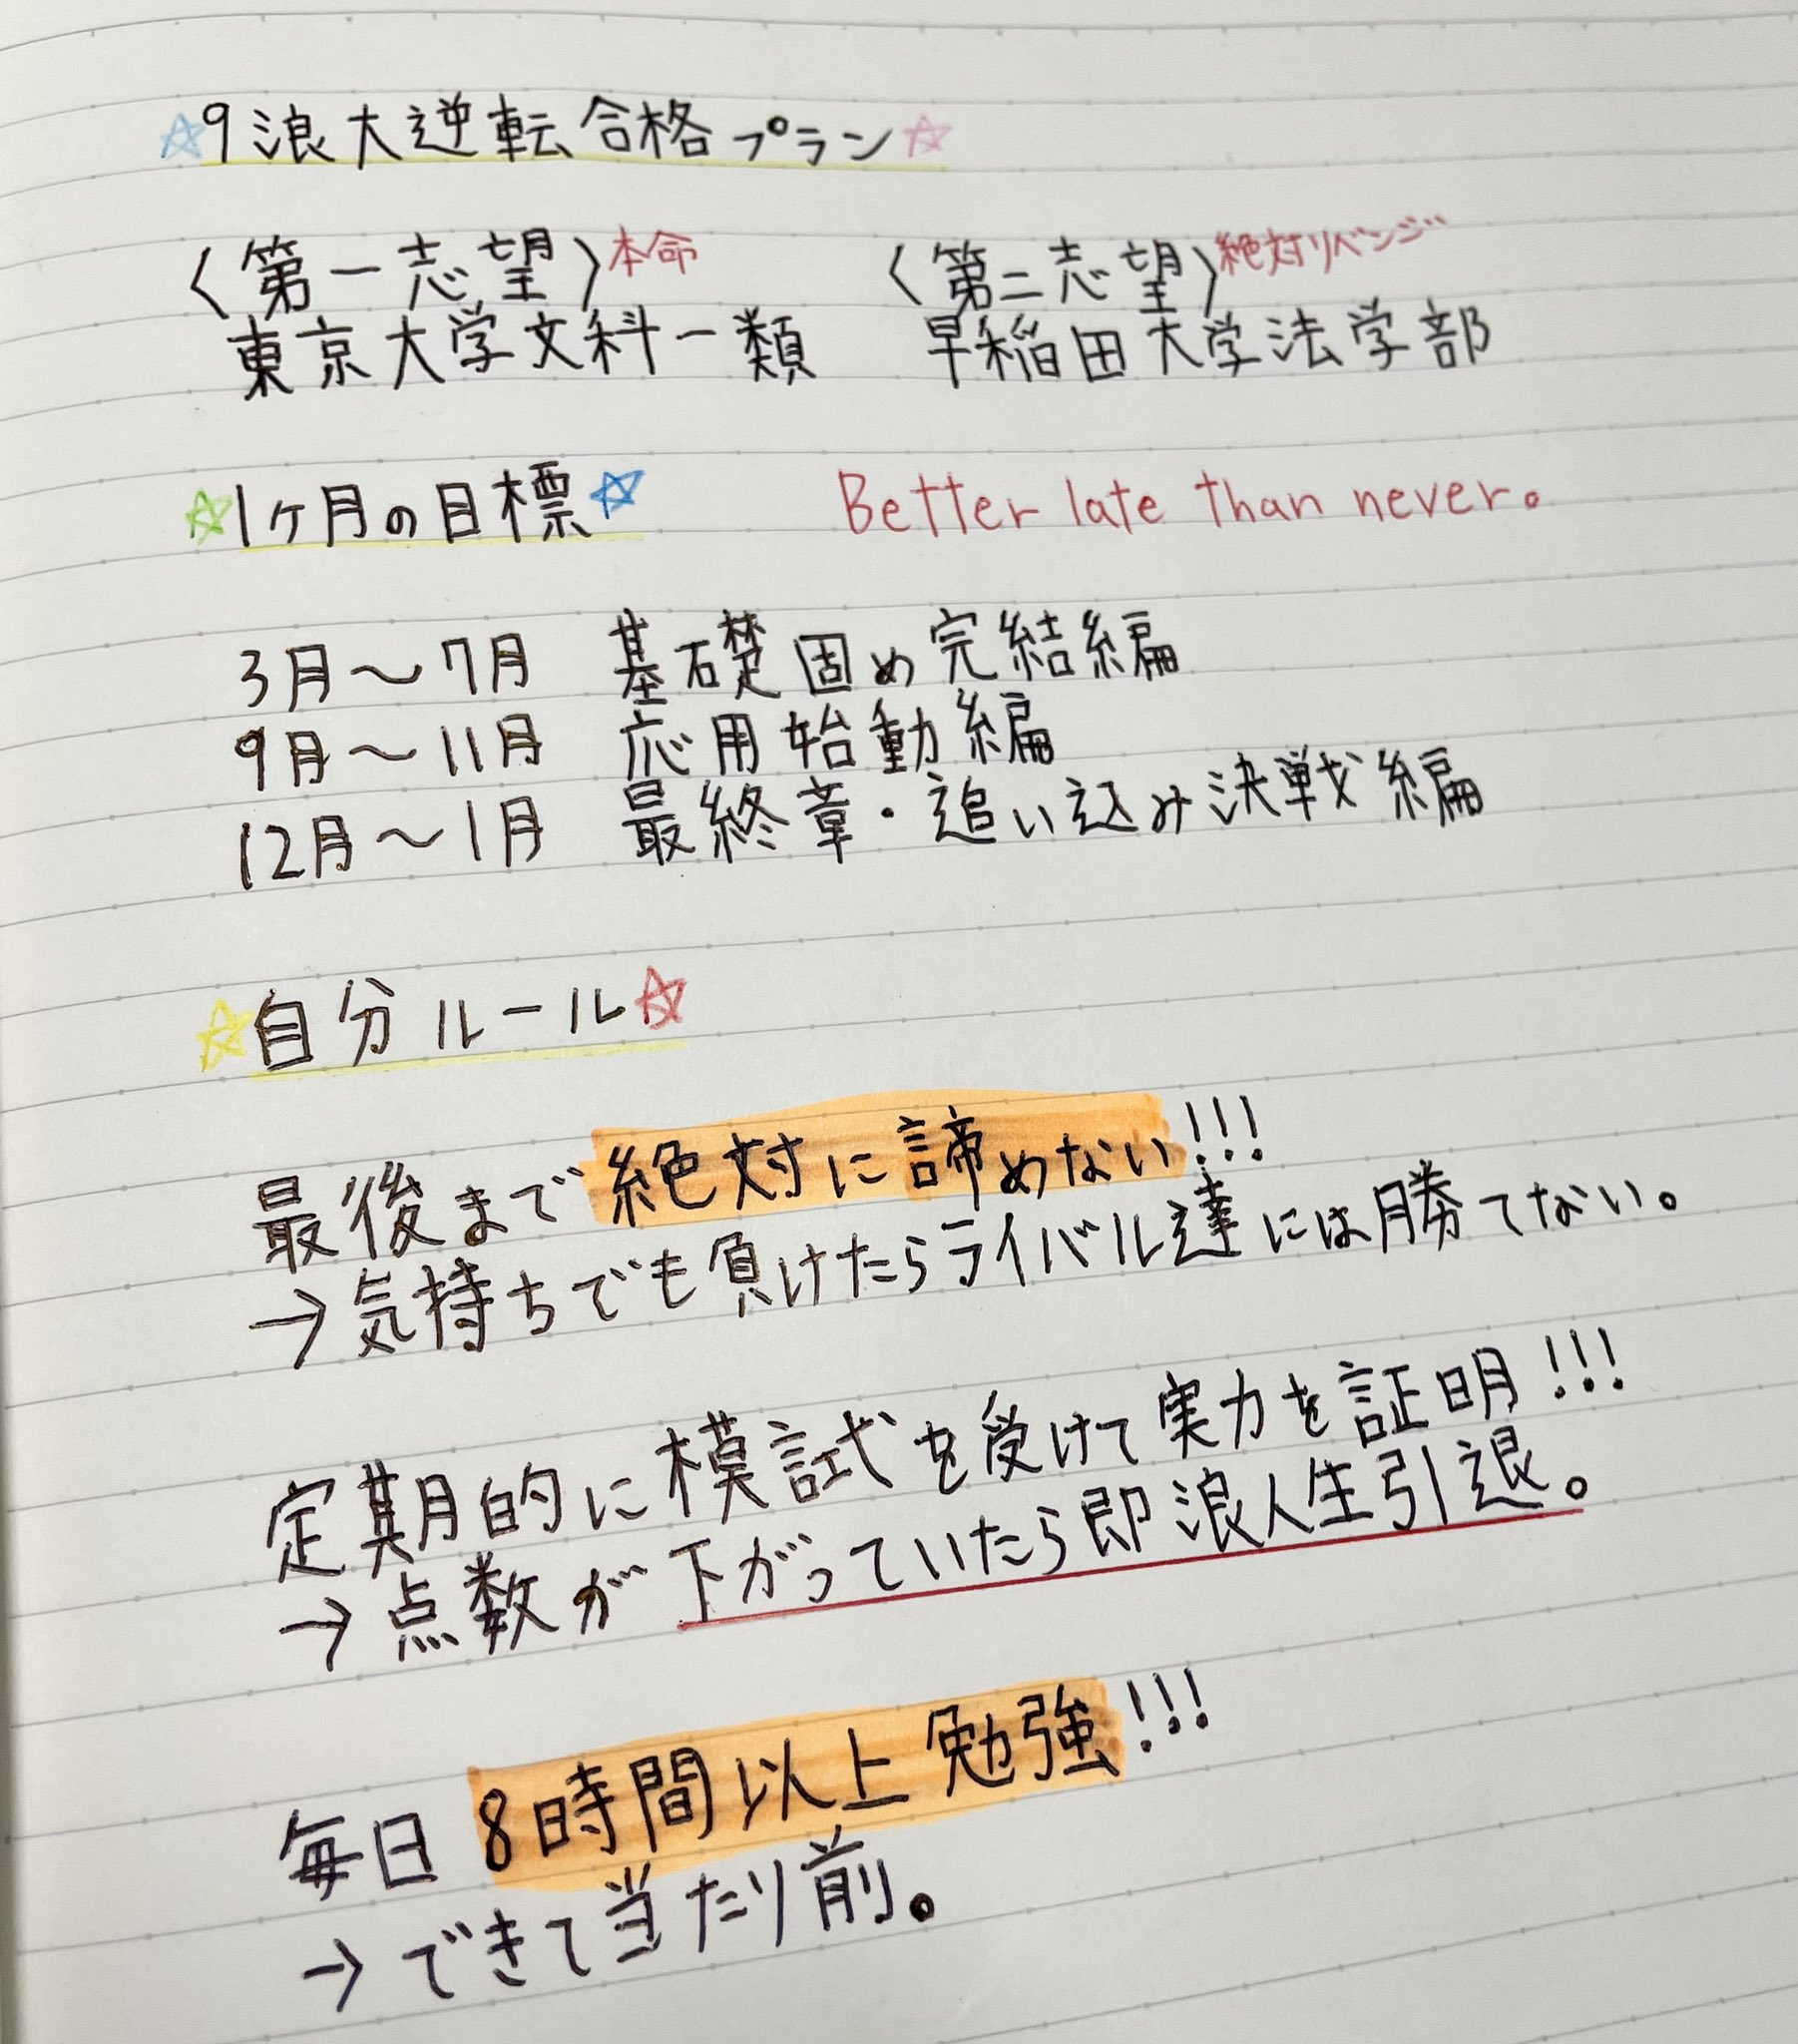 ☆9浪大逆転合格プラン☆
〈第一志望〉本命 〈第二志望〉絶対リベンジ
東京大学文科一類 早稲田大学法学部
☆1ヶ月の目標☆ Better late than never。
3月〜7月 基礎固め完結編
9月〜11月 応用始動編
12月〜1月 最終章・追い込み決戦編
☆自分ルール☆
最後まで絶対に諦めない!!!
→気持ちでも負けたらライバル達には勝てない。
定期的に模試を受けて実力を証明!!!
→点数が下がっていたら即浪人生引退。
毎日8時間以上勉強!!!
→できて当たり前。